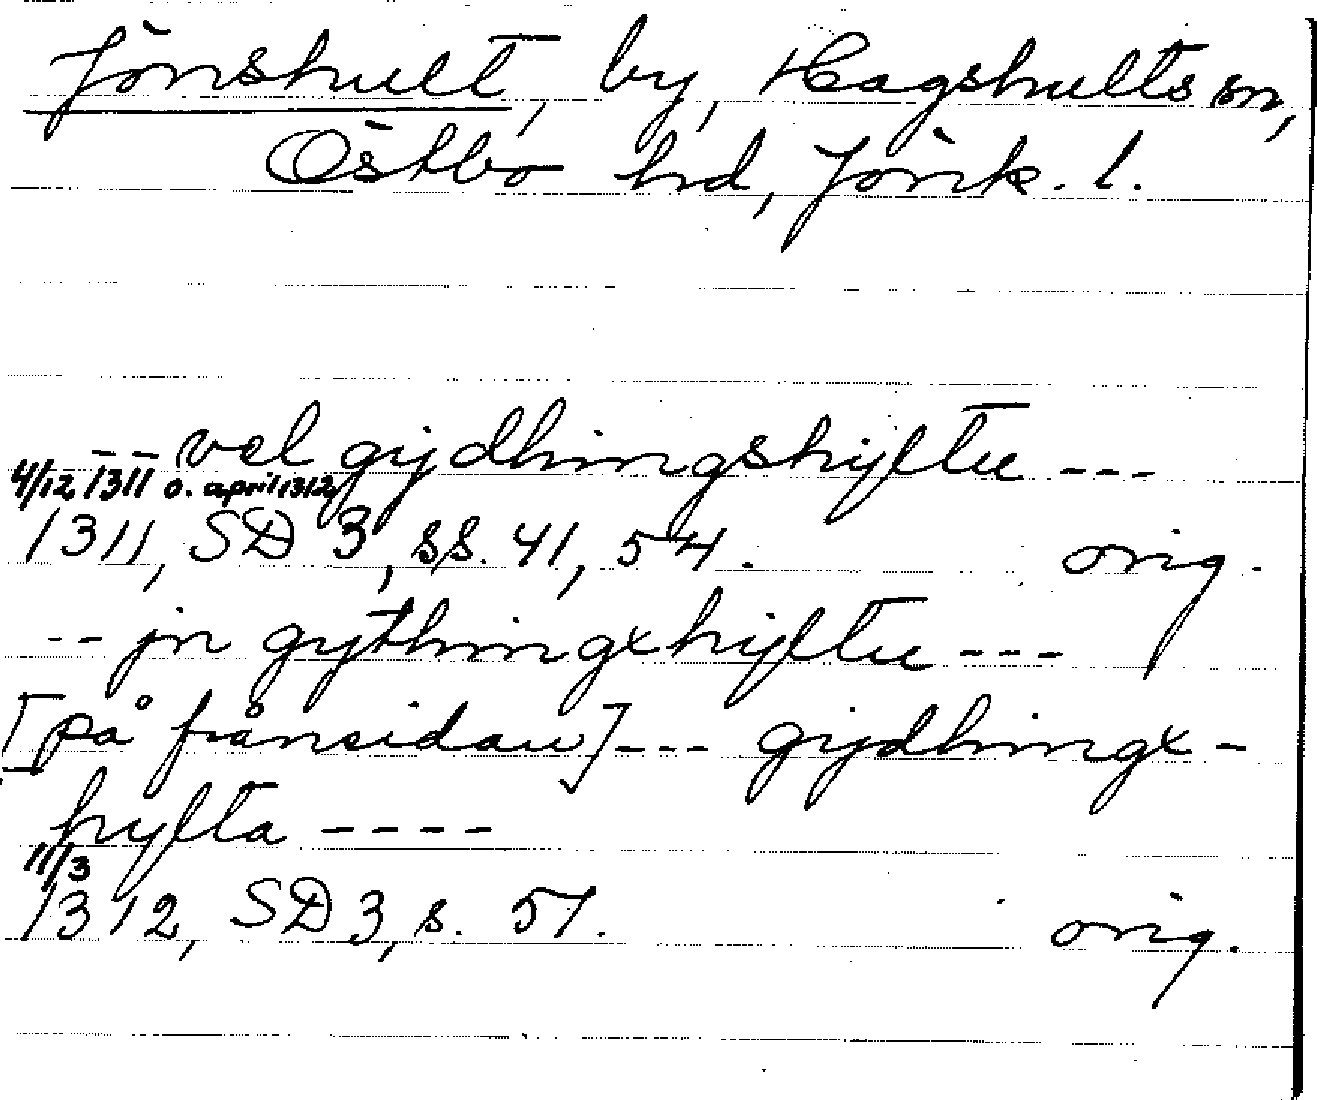 Jönshult, by, Hagshults sn,
Östbo hd, Jönk. l.
vel gijdhingshijltu ---
4/12 1311 o. april 1312
1311, SD 3, ss. 41, 54. orig.
-- jn gijthingxhijltu ---
[på frånsidan] --- gijdhingx-
hijlta ----
11/3
1312, SD 3, s. 51. orig.